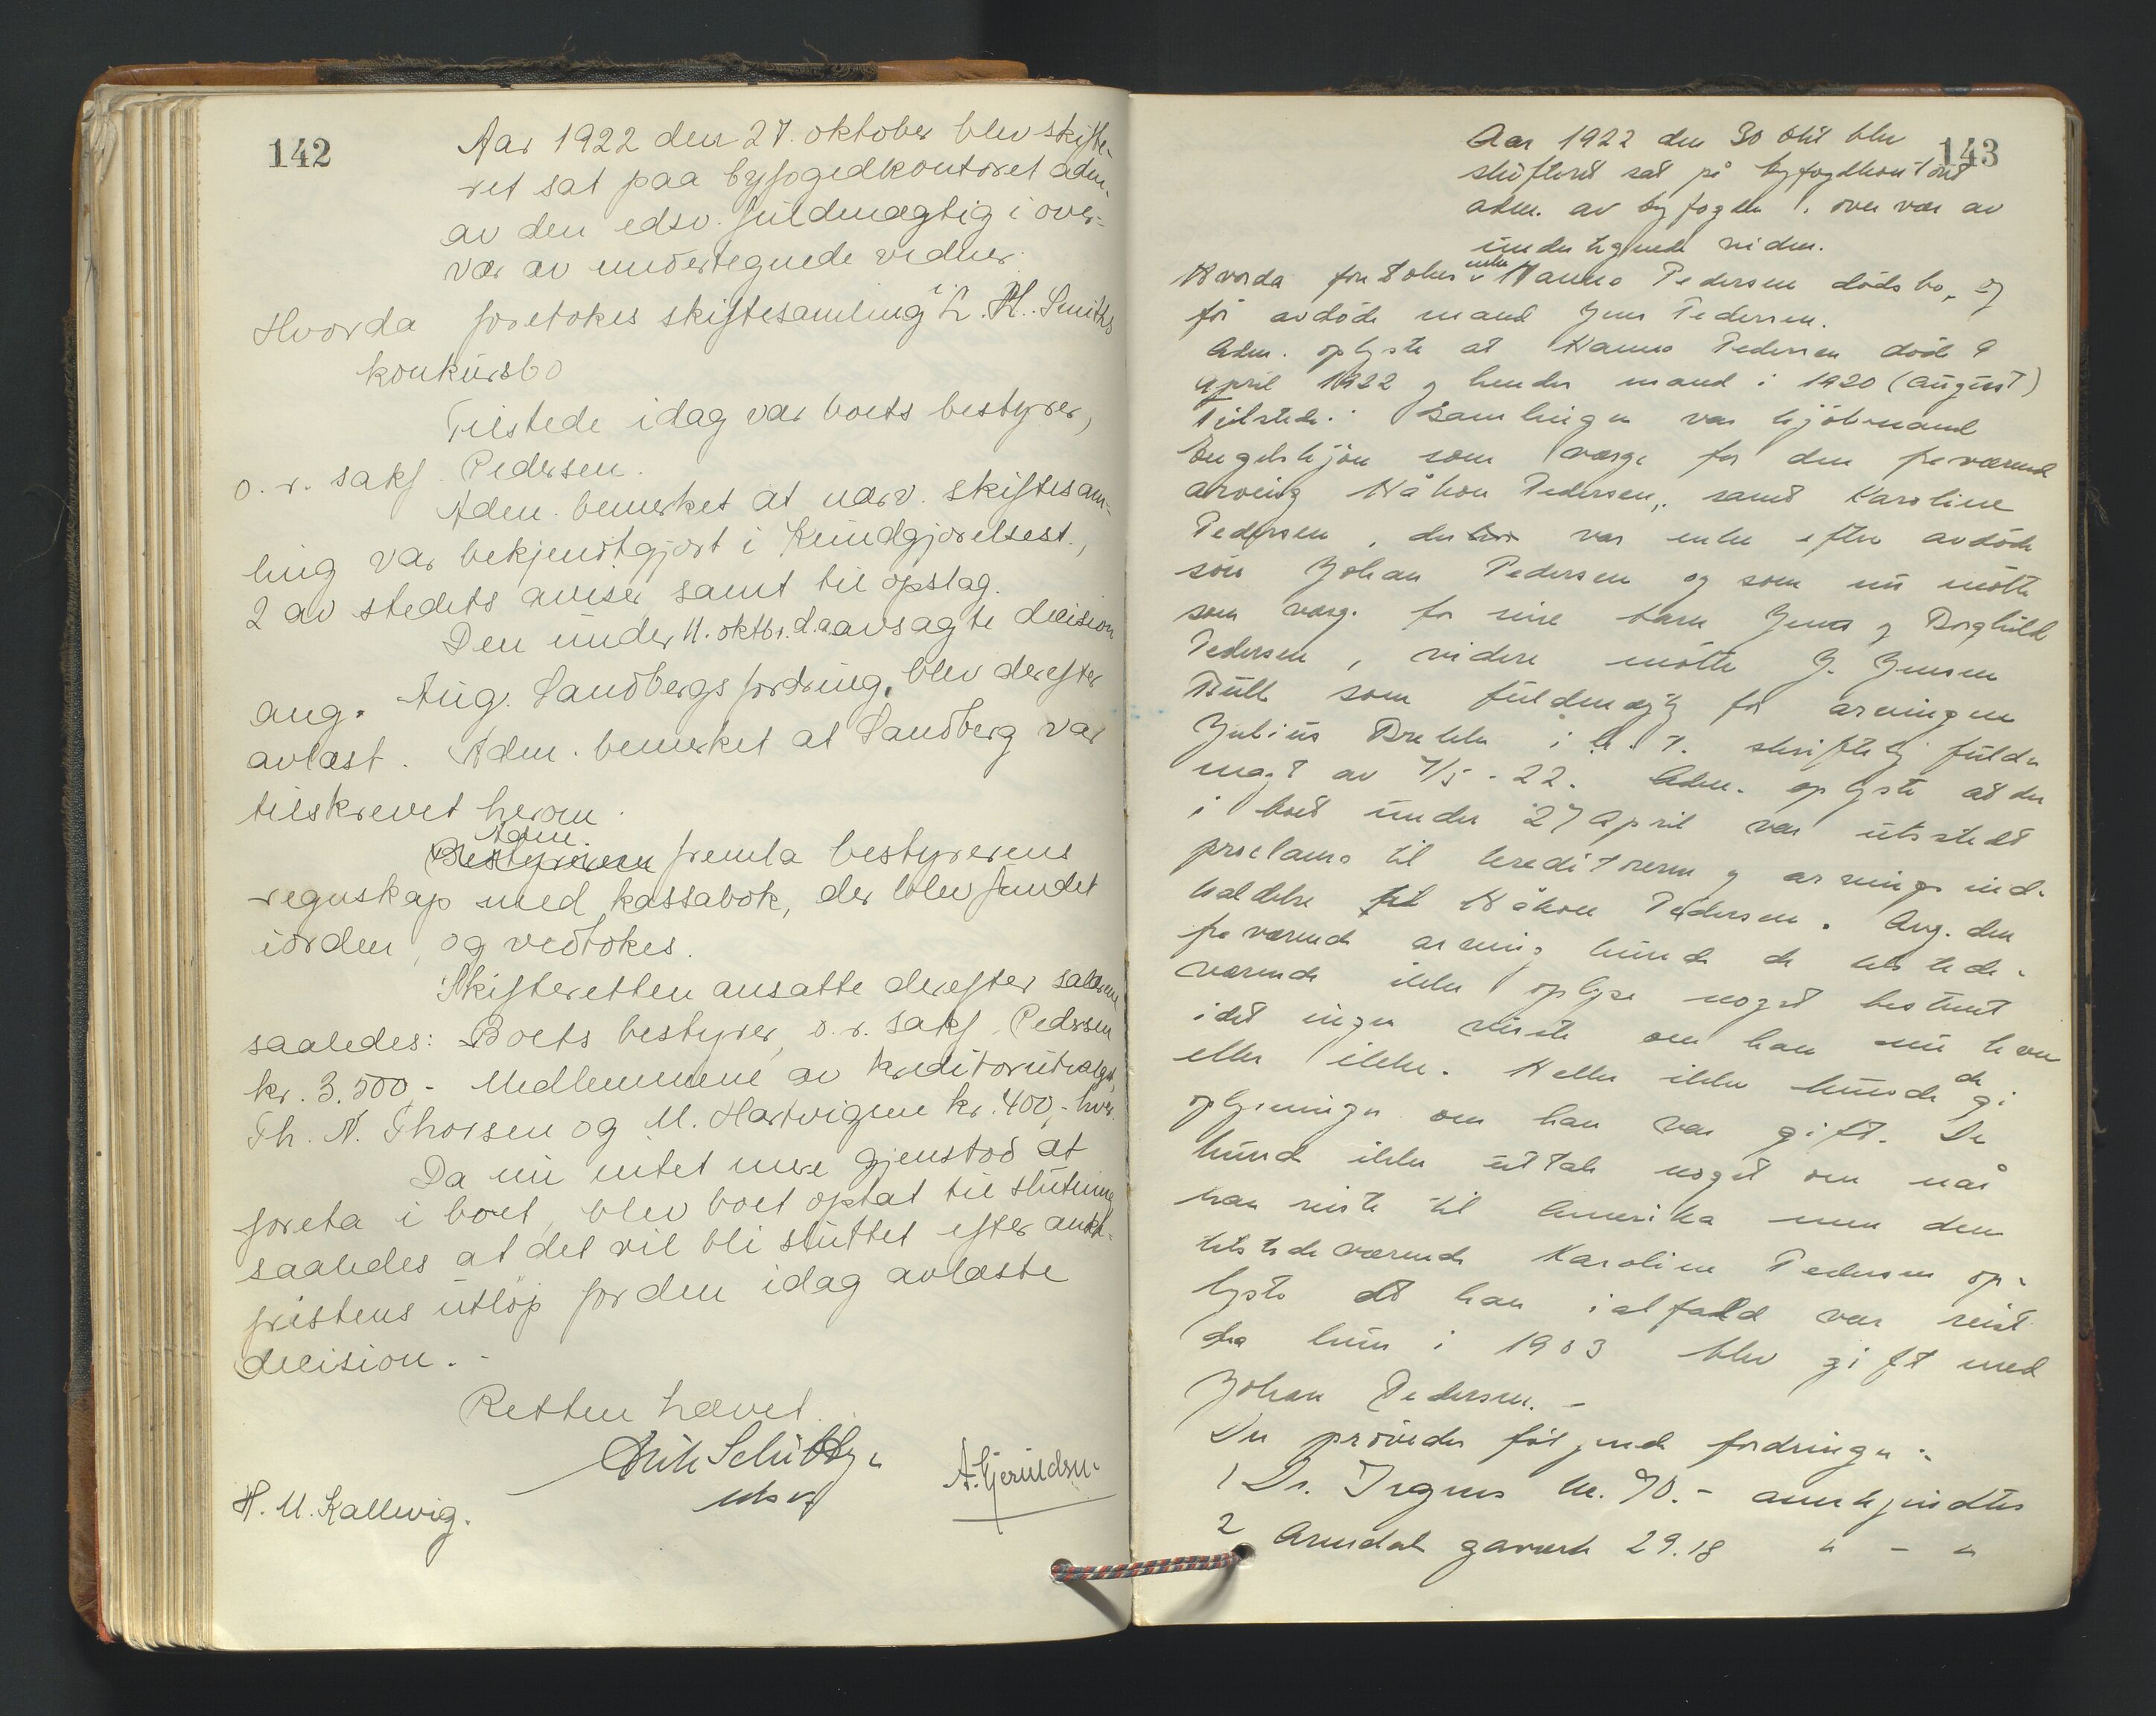 142
Aar 1922 den 27. oktober blev skifte-
ret sat paa byfogedkontoret adm.
av den edsv. fuldmægtig i over-
vær av undertegnede vidner:
Hvorda foretokes skiftesamling i L. H. Smiths
konkursbo
Tilstede idag var boets bestyrer,
o. r. sakf. Pedersen.
Adm. bemerket at nærv. skiftesam-
ling var bekjendtgjort i Kundgjørelsest.,
2 av stedets aviser samt til opslag.
Den under 11. oktbr. d.a. avsagte decision
ang. Aug. Sandbergs fordring, blev derefter
avlæst. Adm. bemerket at Sandberg var
tilskrevet herom.
Adm.
Bestyreren fremla bestyrerens
regnskap med kassabok, der blev fundet
iorden, og vedtokes.
Skifteretten ansatte derefter salærene
saaledes: Boets bestyrer, o. r. sakf. Pedersen
kr. 3.500,- Medlemmene av kreditorutvalget,
Th. N. Thorsen og M. Hartvigsen kr. 400,- hver.
Da nu intet mere gjenstod at
foreta i boet, blev boet optat til slutning
saaledes at det vil bli sluttet efter anke-
fristens utløp for den idag avlæste
decision. -
Retten hævet.
H. M. Kallevig.
143
Aar 1922 den 30 okt blev
skifteret sat på byfogdkontoret
adm. av byfogden i overvær av
undertegnede vidner.
Hvorda foretokes enke Hanna Pedersens dødsbo, og
før avdøde mand Jens Pedersen.
Adm. oplyste at Hanna Pedersen døde 9
april 1922 og hendes mand i 1920 (august)
Tilstede i samlingen var kjøbmand
Engelskjøn som værge for den fraværende
arving Håkon Pedersen, samt Karoline
Pedersen, der var enke efter avdøde
søn Johan Pedersen og som nu møtte
som værge for sine barn Jens og Borghild
Pedersen, videre møtte J. Jensen
Bull som fuldmægtig for arvingen
Julius i h. t. skriftlig fuld-
magt av 7/5 - 22. Adm. oplyste at der
i boet under 27 April var utstedt
proclama til kreditorerne og arvings ind-
kaldelse til Håkon Pedersen. Ang. den
fraværende arving kunde de tilstede-
værende ikke oplyse noget bestemt
idet ingen visste om han nu lever
eller ikke. Heller ikke kunde de gi
oplysninger om han var gift. De
kunde ikke uttale noget om når
han reiste til Amerika men den
tilstedeværende Karoline Pedersen op-
lyste at han ialfald var reist
da hun i 1903 blev gift med
Johan Pedersen. -
Der prøvedes følgende fordringer:
1 Dr. Irgens kr. 70.- anerkjendtes
2 Arendal gasverk 29.18 " - "